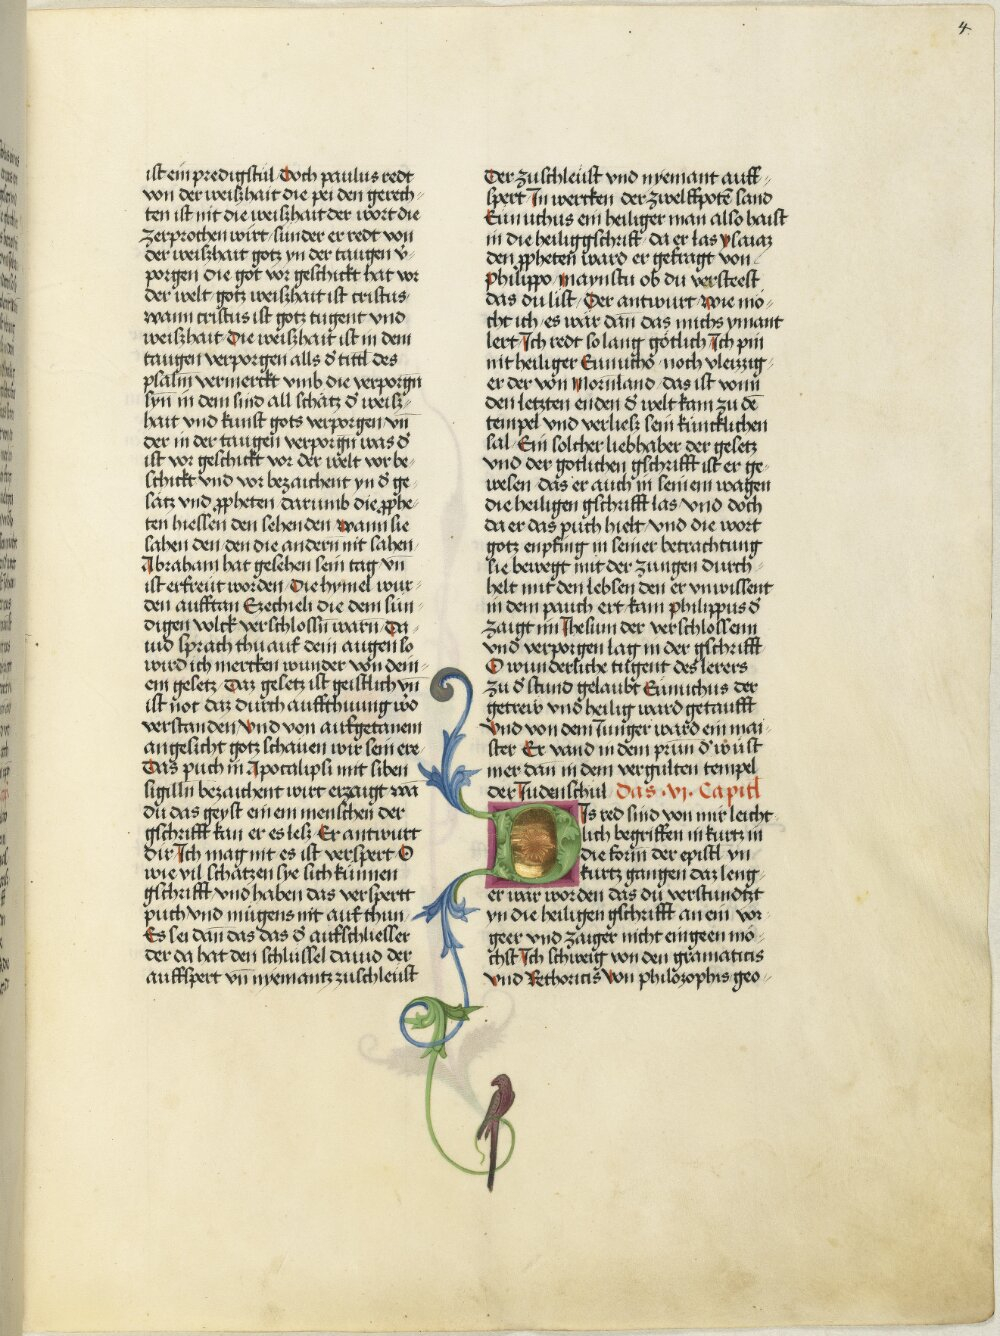 4
ist ein predigstůl Doch paulus redt
von der weißhait die pei den gerech-
ten ist nit die weißhait der wort die
zerprochen wirt sunder er redt von
der weißhait gotz yn der taugen v̄-
porgen die got vor geschickt hat vor
der welt gotz weißhait ist cristus
wann cristus ist gotz tugent vnd
weißhait Die weißhait ist in dem
taugen verporgen alls d̄ tittl des
psalm vermerckt vmb die verporgn̄
syn in dem sind all schätz d̄ weisz-
hait vnd kunst gots verporgen vn̄
der in der taugen verporgn̄ was d̄
ist vor geschickt vor der welt vor be-
schickt vnd vor bezaichent yn d̄ ge-
satz vnd ꝓpheten darumb die ꝓphe-
ten hiessen den sehenden wann sie
sahen den den die andern nit sahen
Abraham hat gesehen sein tag vn̄
ist erfreut worden Die hymel wur-
den aufftan Ezechieli die dem sun-
digen volck verschlossn̄ warn Da-
uid sprach thu auf dem augen so
wird ich mercken wunder von dein-
em gesetz Daz gesetz ist geistlich vn̄
ist not daz durch auffthuung wo
verstanden Vnd von aufgetanem
angesicht gotz schauen wir sein ere
Das puch in Apocalipsi mit siben
sigilln bezaichent wirt erzaigt wa
du das geyst einem menschen der
gschrifft kan er es lesz Er antwurt
dir Ich mag nit es ist verspert O
wie vil schätzen sye sich kunnen
gschrifft vnd haben das verspertt
puch vnd mügens nit auf thun
Es sei dan das das d̄ aufschliesser
der da hat den schlüssel dauid der
auffspert vn̄ nyemantz zuschleust
Der zuschleust vnd nyemant auff-
spert In wercken der zwelffpotē sand
Eunuchus ein heiliger man also haist
in die heilig gschrifft da er las ysaiaz
den ppheten ward er gefragt von
Philippo Maynstu ob du versteest
das du list Der antwurt wie mö-
cht ich es wär dan das michs ymant
lert Ich redt so lang götlich Ich pin
nit heiliger Eunucho noch vleizzig-
er der von Mornland das ist vonn
den letzten enden d̄ welt kam zu dē
tempel vnd verließ sein küncklichen
sal Ein solcher liebhaber der gesetz
vnd der gotlichen gschrifft ist er ge-
wesen das er auch in seinem wagen
die heiligen gschrifft las vnd doch
da er das puch hielt vnd die wort
gotz enpfing in seiner betrachtung
sie bewegt mit der zungen durch-
helt mit den lebsen den er vnwissent
in dem pauch ert kam philippus d̄
zaigt im Jhesum der verschlossenn
vnd verporgen lag in der gschrifft
O wunderliche tugent des lerers
zu d̄ stund gelaubt Eunuchus der
getrew vnd heilig ward getaufft
Vnd von dem Juniger ward ein mai-
ster Er vand in dem prun d̄ wüst
mer dan in dem vergulten tempel
der Judenschul Das .vj. Capitl
DIs red sind von mir leicht-
lich begriffen in kurtz in
die form der epistl vn̄
kurtz gangen daz leng-
er war worden das du verstundtzt
yn die heiligen gschrifft an ein vor-
geer vnd zaiger nicht eingeen mö-
chst Ich schweig von den gramaticis
vnd Rethoricis Von philozophis geo-